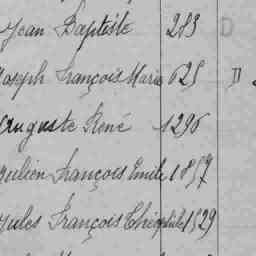 Jean Baptiste 283 D
Joseph François Marie 625 D
Auguste René 1296
Julien François Emile 1857
Jules François Théophile 1529